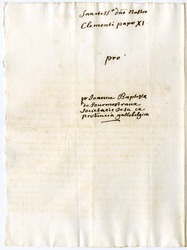 Sanctiss.o dno Nostro
Clementi papæ XI
pro
p Joanne Baptista
de
Societatis Jesu ex
provincia gallobelgica